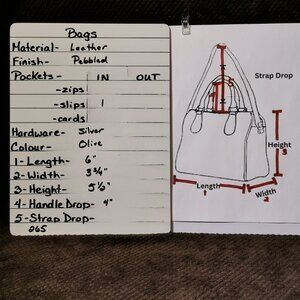 Bags
Material- Leather
Finish- Pebbled
Pockets- IN OUT
-zips
-slips 1
-cards
Hardware- Silver
Colour- Olive
1-Length- 6"
2-Width- 3 3/4"
3-Height- 5 1/2"
4-Handle Drop- 4"
5-Strap Drop-
265
Strap Drop
5
4
Height
3
Length
1
Width
2